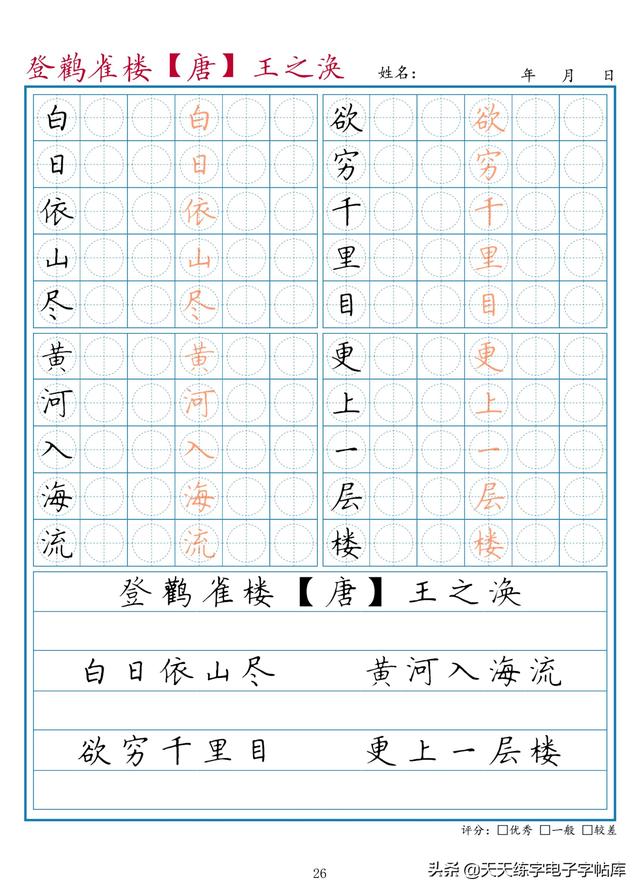 登鹳雀楼【唐】王之涣 姓名： 年 月 日
白 白 欲 欲
日 日 穷 穷
依 依 千 千
山 山 里 里
尽 尽 目 目
黄 黄 更 更
河 河 上 上
入 入 一 一
海 海 层 层
流 流 楼 楼
登鹳雀楼【唐】王之涣
白日依山尽 黄河入海流
欲穷千里目 更上一层楼
评分：□优秀 □一般 □较差
26
头条 @天天练字电子字帖库